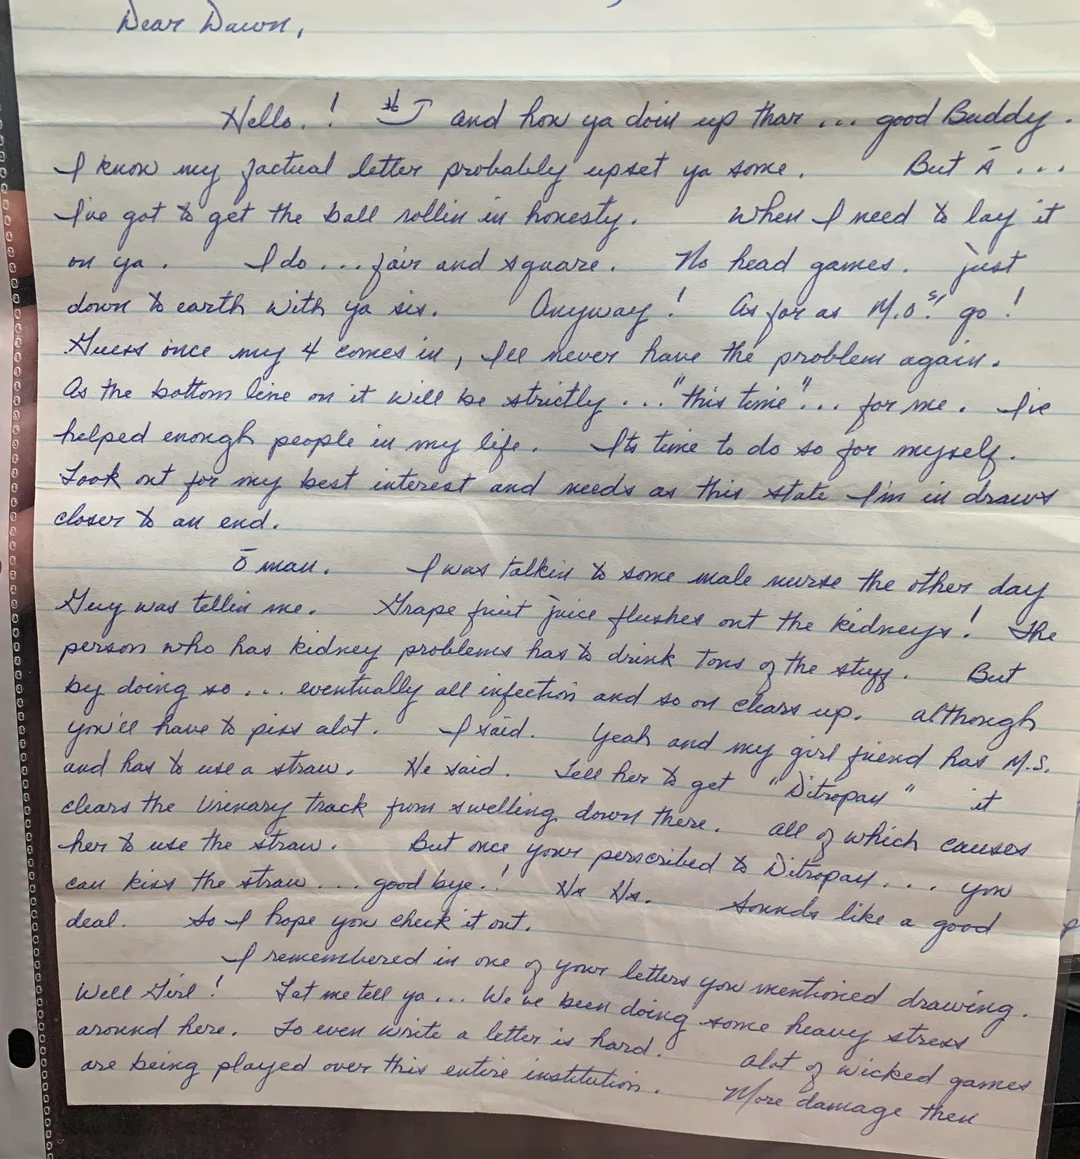 Dear Dawn,
Hello.! and how ya doin up thar ... good Buddy.
I know my factual letter probably upset ya some. But Ā ...
I've got to get the ball rollin in honesty. When I need to lay it
on ya. I do ... fair and square. No head games. just
down to earth with ya sis. Anyway! As far as M.O.s! go!
Guess once my 4 comes in, Ill never have the problem again.
As the bottom line on it will be strictly ... "this time" ... for me. I've
helped enough people in my life. Its time to do so for myself.
Look out for my best interest and needs as this state I'm in draws
closer to an end.
ō man. I was talkin to some male nurse the other day
Guy was tellin me. Grape fruit juice flushes out the kidneys! The
person who has kidney problems has to drink Tons of the stuff. But
by doing so ... eventually all infection and so on clears up. although
you'll have to piss alot. I said. Yeah and my girl friend has M.S.
and has to use a straw. He said. Tell her to get "Ditropan" it
clears the Urenary track from swelling down there. all of which causes
her to use the straw. But once your perscribed to Ditropan .... you
can kiss the straw ... good bye.! Ha Ha. Sounds like a good
deal. So I hope you check it out.
I remembered in one of your letters you mentioned drawing.
Well Girl! Let me tell ya ... We've been doing some heavy stress
around here. To even write a letter is hard. alot of wicked games
are being played over this entire institution. More damage then